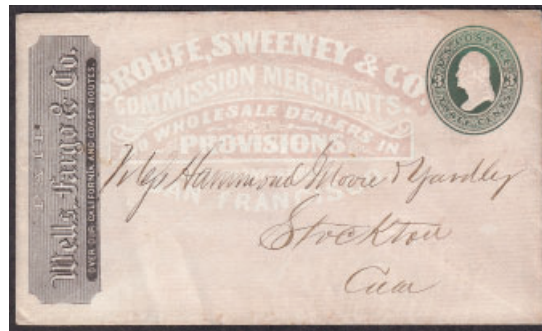 PAID
Wells, Fargo & Co.
OVER OUR CALIFORNIA AND COAST ROUTES.
SROUFE, SWEENEY & CO.
COMMISSION MERCHANTS
WHOLESALE DEALERS IN
PROVISIONS
SAN FRANCISCO
U.S. POSTAGE
THREE CENTS
Hammond Moore & Yardley
Stockton